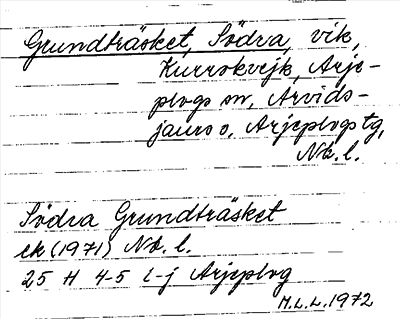 Grundträsket, Södra, vik,
Kurrokvejk, Arje-
plogs sn, Arvids-
jaurs o, Arjeplogs tg,
Nb. l.
Södra Grundträsket
ek (1971) Nb. l.
25 H 4-5 i-j Arjeplog
M.L.L. 1972